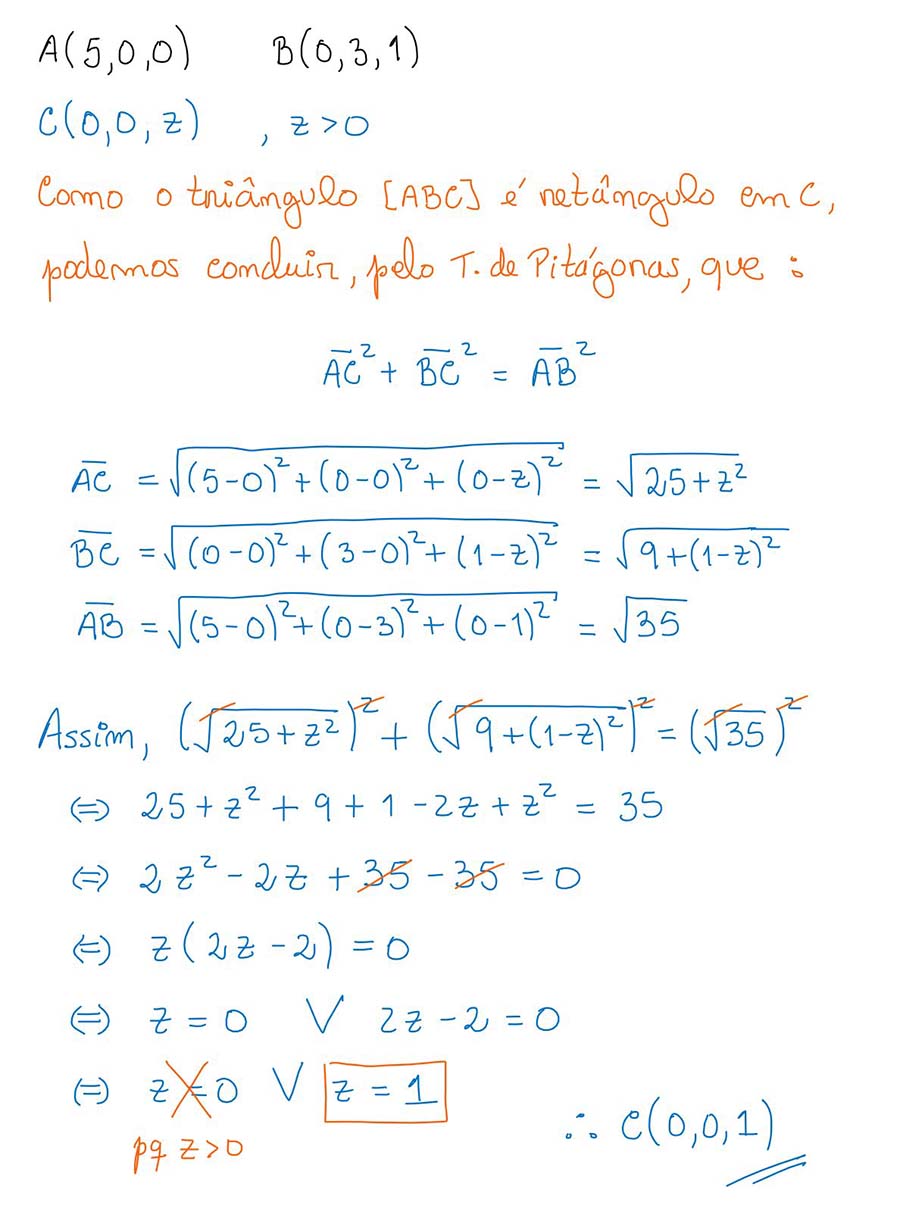 A(5,0,0) B(0,3,1)
C(0,0,z) , z>0
Como o triângulo [ABC] é retângulo em C,
podemos concluir, pelo T. de Pitágoras, que :
A̅C̅² + B̅C̅² = A̅B̅²
A̅C̅ = √((5-0)²+(0-0)²+(0-z)²) = √(25+z²)
B̅C̅ = √((0-0)²+(3-0)²+(1-z)²) = √(9+(1-z)²)
A̅B̅ = √((5-0)²+(0-3)²+(0-1)²) = √35
Assim, (√(25+z²))² + (√(9+(1-z)²))² = (√35)²
⇔ 25+z²+9+1-2z+z² = 35
⇔ 2z²-2z+35-35=0
⇔ z(2z-2)=0
⇔ z=0 ∨ 2z-2=0
⇔ z=0 ∨ z=1
pq z>0
∴ C(0,0,1)